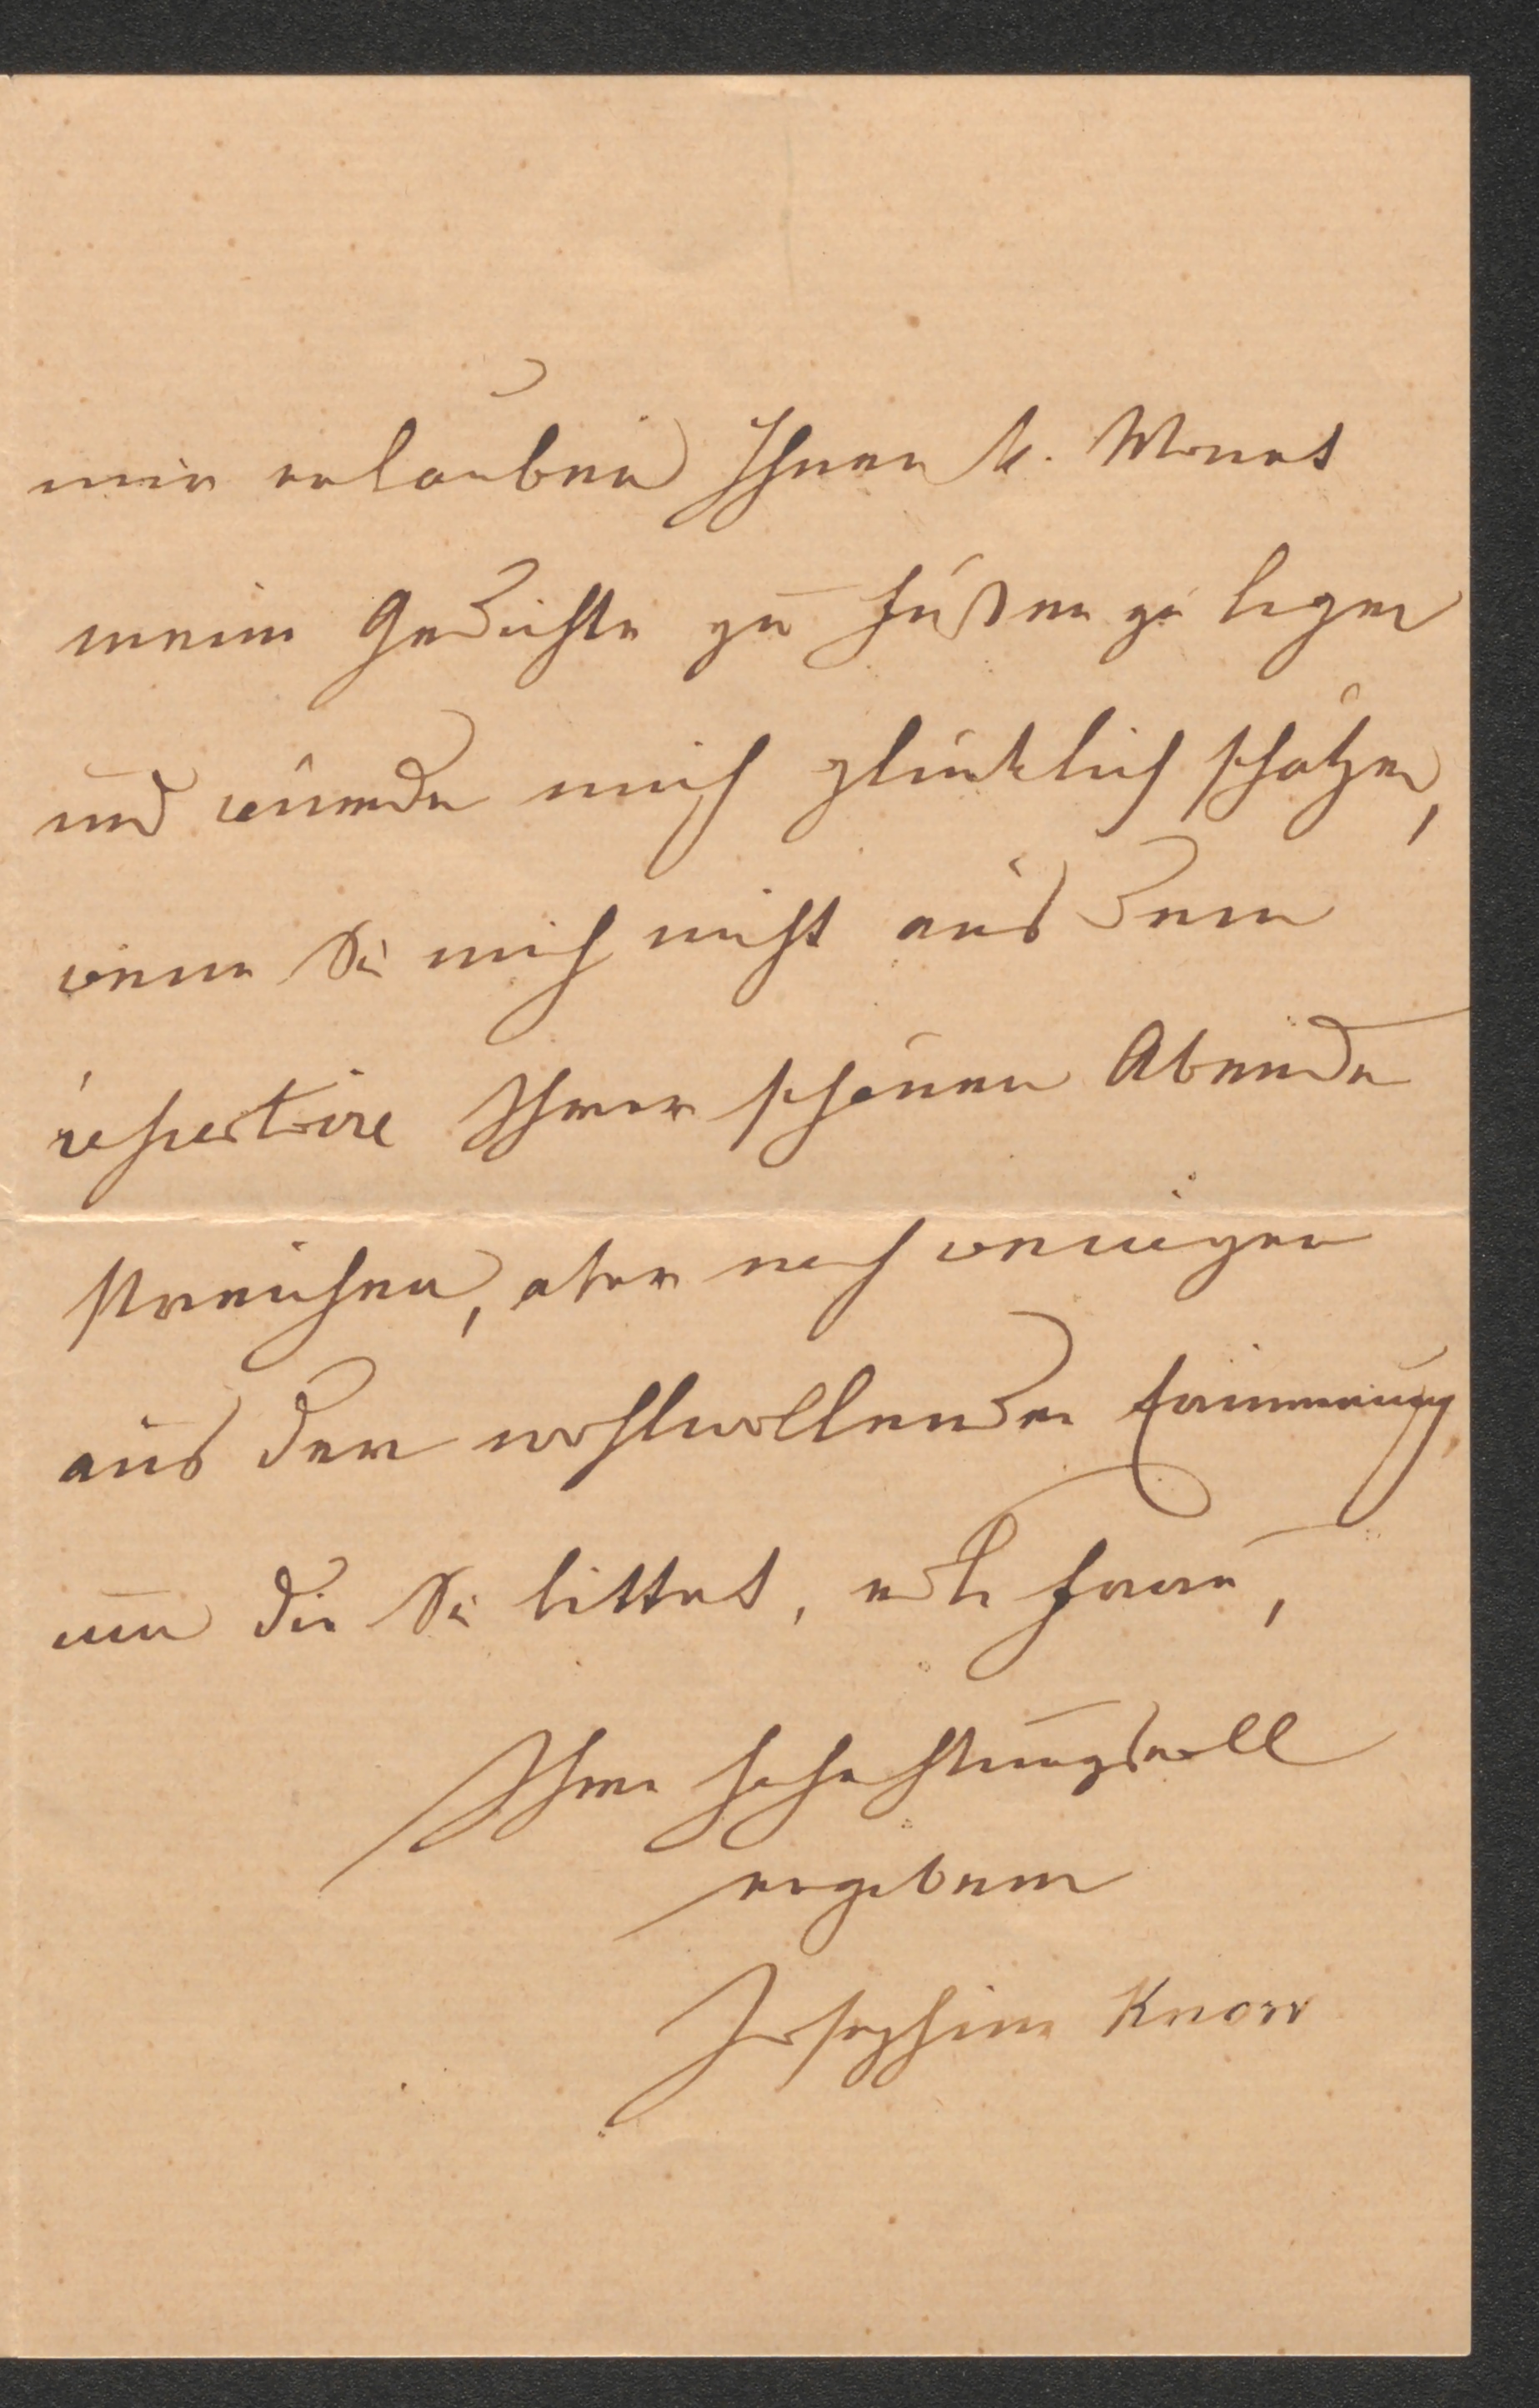 mir erlauben Ihnen k. Monat
meine Gedichte zu Füßen zu legen
und würde mich glücklich schätzen,
wenn Sie mich nicht aus dem
répertoire Ihrer schönen Abende
streichen, aber noch weniger
aus der wohlwollenden Erinnerung,
um die Sie bittet, edle Frau,
Ihre hochachtungsvoll
ergebene
Josephine Knorr